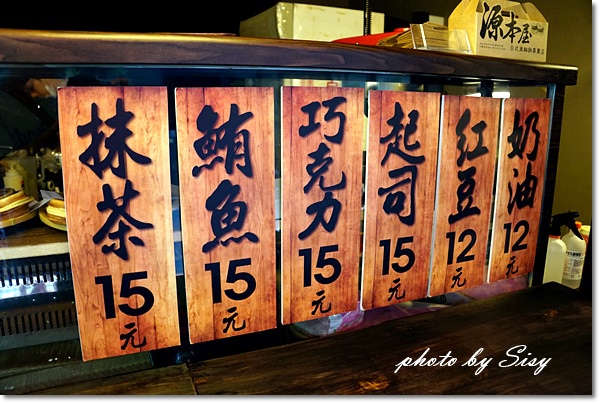 源本屋
抹茶
15
元
鮪魚
15
元
巧克力
15
元
起司
15
元
紅豆
12
元
奶油
12
元
photo by Sisy